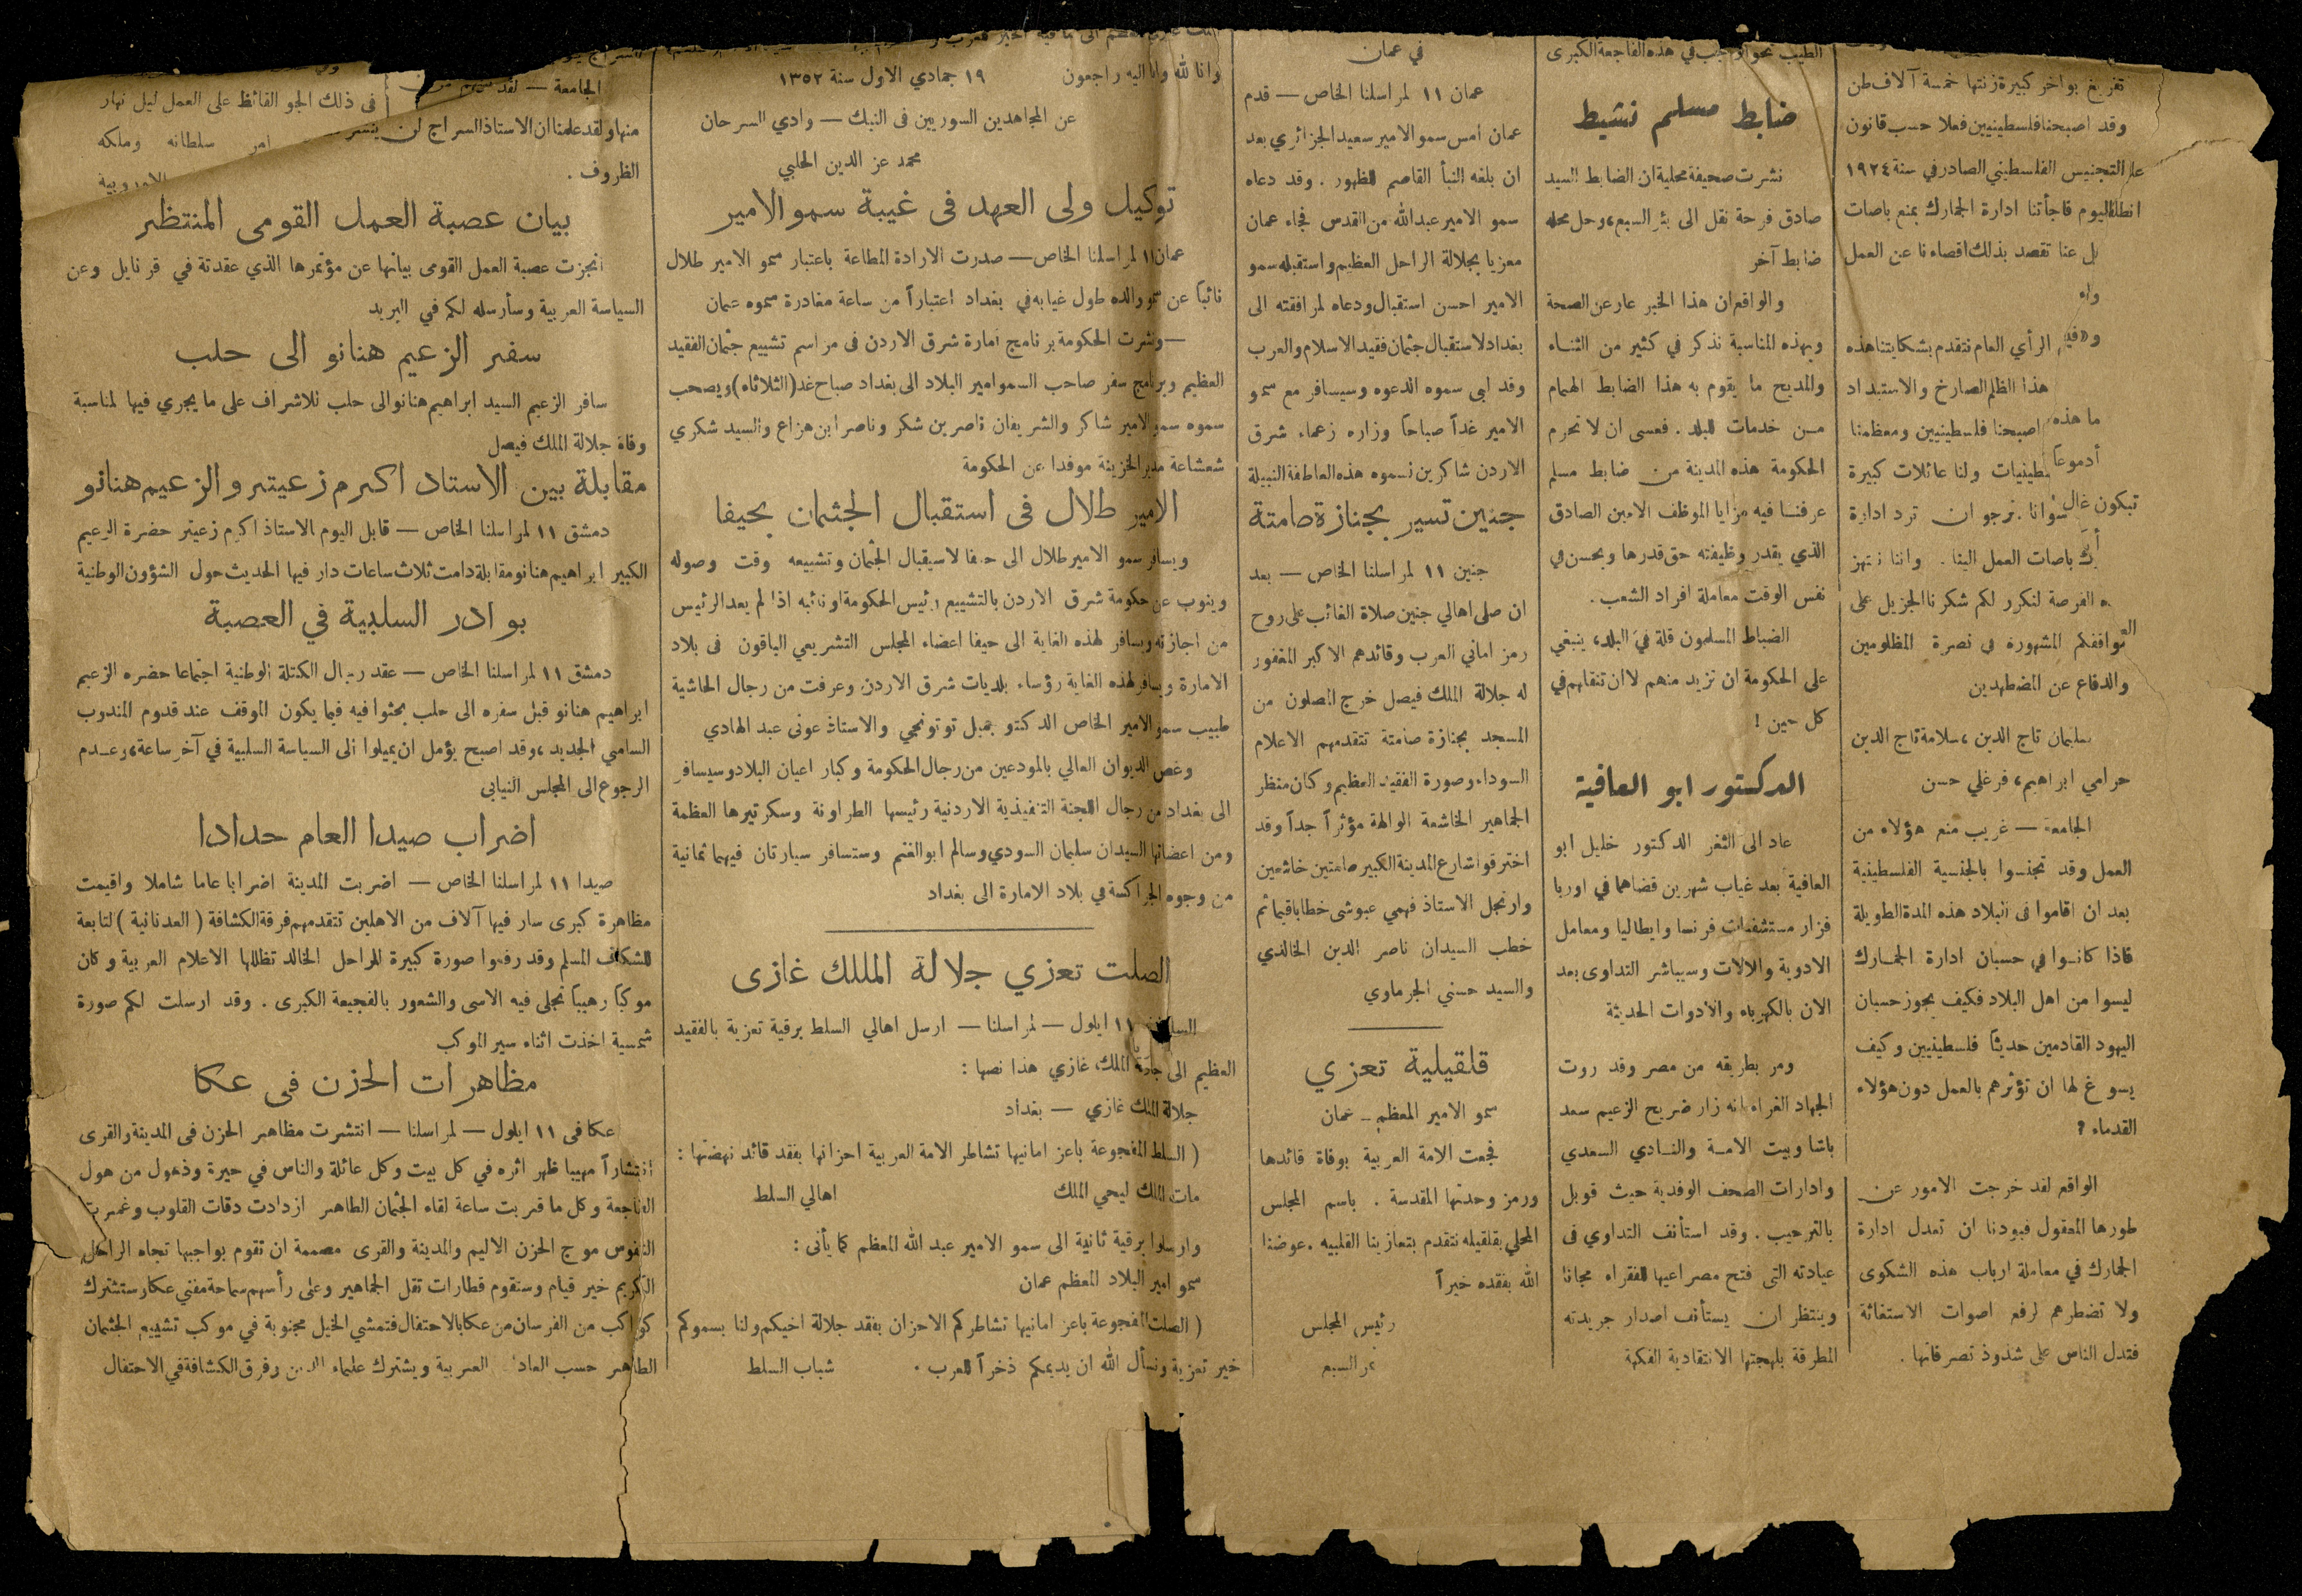 تفريغ بواخر كبيرة زنتها خمسة آلاف طن
وقد اصبحنا فلسطينيين فعلا حسب قانون
التجنيس الفلسطيني الصادر في سنة ١٩٢٤
اليوم فاجأتنا ادارة الجمارك بمنع باصات
عنا تقصد بذلك اقصاءنا عن العمل
الرأي العام نتقدم بشكايتنا هذه
هذا الظلم الصارخ والاستبداد
ما هذه اصبحنا فلسطينيين ومعظمنا
ولنا عائلات كبيرة
نرجو ان ترد ادارة
باصات العمل الينا . واننا ننتهز
الفرصة لنكرر لكم شكرنا الجزيل على
المشهورة في نصرة المظلومين
والدفاع عن المضطهدين
سليمان تاج الدين ، سلامة تاج الدين
حرامي ابراهيم ، فرغلي حسن
الجامعة — غريب منع هؤلاء من
العمل وقد تجنسوا بالجنسية الفلسطينية
بعد ان اقاموا فى البلاد هذه المدة الطويلة
فاذا كانوا في حسبان ادارة الجمارك
ليسوا من اهل البلاد فكيف يجوز حسبان
اليهود القادمين حديثاً فلسطينيين وكيف
يسوغ لها ان تؤثرهم بالعمل دون هؤلاء
القدماء ؟
الواقع لقد خرجت الامور عن
طورها المعقول فبودنا ان تعدل ادارة
الجمارك في معاملة ارباب هذه الشكوى
ولا تضطرهم لرفع اصوات الاستغاثة
فتدل الناس على شذوذ تصرفاتها .
الطيب نحو الواجب في هذه الفاجعة الكبرى
ضابط مسلم نشيط
نشرت صحيفة محلية ان الضابط السيد
صادق فرحة نقل الى بئر السبع ، وحل محله
ضابط آخر
والواقع ان هذا الخبر عار عن الصحة
وبهذه المناسبة نذكر في كثير من الثناء
والمديح ما يقوم به هذا الضابط الهمام
من خدمات للبلد . فعسى ان لا تحرم
الحكومة هذه المدينة من ضابط مسلم
عرفنا فيه مزايا الموظف الامين الصادق
الذي يقدر وظيفته حق قدرها ويحسن في
نفس الوقت معاملة افراد الشعب .
الضباط المسلمون قلة في البلد ، ينبغي
على الحكومة ان تزيد منهم لا ان تنقلهم في
كل حين !
الدكتور ابو العافية
عاد الى الثغر الدكتور خليل ابو
العافية بعد غياب شهرين قضاهما في اوربا
فزار مستشفيات فرنسا وايطاليا ومعامل
الادوية والالات وسيباشر التداوى بعد
الان بالكهرباء والادوات الحديثة
ومر بطريقه من مصر وقد روت
الجهاد الغراء انه زار ضريح الزعيم سعد
باشا وبيت الامة والنادي السعدي
وادارات الصحف الوفدية حيث قوبل
بالترحيب . وقد استأنف التداوي فى
عيادته التى فتح مصراعيها للفقراء مجانا
وينتظر ان يستأنف اصدار جريدته
المطرقة بلهجتها الانتقادية الفكهة
في عمان
عمان ١١ لمراسلنا الخاص — قدم
عمان امس سمو الامير سعيد الجزائري بعد
ان بلغه النبأ القاصم للظهور . وقد دعاه
سمو الامير عبدالله من القدس فجاء عمان
معزيا بجلالة الراحل العظيم واستقبله سمو
الامير احسن استقبال ودعاه لمرافقته الى
بغداد لاستقبال جثمان فقيد الاسلام والعرب
وقد لبى سموه الدعوه وسيسافر مع سمو
الامير غداً صباحاً وزاره زعماء شرق
الاردن شاكرين لسموه هذه العاطفة النبيلة
جنين تسير بجنازة صامتة
جنين ١١ لمراسلنا الخاص — بعد
ان صلى اهالي جنين صلاة الغائب على روح
رمز اماني العرب وقائدهم الاكبر المغفور
له جلالة الملك فيصل خرج المصلون من
المسجد بجنازة صامتة تتقدمهم الاعلام
السوداء وصورة الفقيد العظيم وكان منظر
الجماهير الخاشعة الوالهة مؤثراً جداً وقد
اخترقوا شارع المدينة الكبير صامتين خاشعين
وارتجل الاستاذ فهمي عبوشى خطابا قيما ثم
خطب السيدان ناصر الدين الخالدي
والسيد حسني الجرماوي
قلقيلية تعزي
سمو الامير المعظم – عمان
فجعت الامة العربية بوفاة قائدها
ورمز وحدتها المقدسة . باسم المجلس
المحلي بقلقيله نتقدم بتعازينا القلبيه . عوضنا
الله بفقده خيراً
رئيس المجلس
نمر السبع
وانا لله وانا اليه راجعون ١٩ جمادي الاول سنة ١٣٥٢
عن المجاهدين السوريين فى النبك — وادي السرحان
محمد عز الدين الحلبي
توكيل ولى العهد فى غيبة سمو الامير
عمان ١١ لمراسلنا الخاص — صدرت الارادة المطاعة باعتبار سمو الامير طلال
نائباً عن سمو والده طول غيابه في بغداد اعتباراً من ساعة مغادرة سموه عمان
— ونشرت الحكومة برنامج امارة شرق الاردن فى مراسم تشييع جثمان الفقيد
العظيم وبرنامج سفر صاحب السمو امير البلاد الى بغداد صباح غد (الثلاثاء) ويصحب
سموه سمو الامير شاكر والشريفان ناصر بن شكر وناصر ابن هزاع والسيد شكري
شعشاعة مدير الخزينة موفدا عن الحكومة
الامير طلال فى استقبال الجثمان بحيفا
ويسافر سمو الامير طلال الى حيفا لاسيقبال الجثمان وتشييعه وقت وصوله
وينوب عن حكومة شرق الاردن بالتشييع رئيس الحكومة او نائبه اذا لم يعد الرئيس
من اجازته ويسافر لهذه الغاية الى حيفا اعضاء المجلس التشريعي الباقون فى بلاد
الامارة ويسافر لهذه الغاية رؤساء بلديات شرق الاردن وعرفت من رجال الحاشية
طبيب سمو الامير الخاص الدكتو جميل توتونجي والاستاذ عونى عبد الهادي
وغص الديوان العالي بالمودعين من رجال الحكومة وكبار اعيان البلاد وسيسافر
الى بغداد من رجال اللجنة التنفيذية الاردنية رئيسها الطراونة وسكرتيرها العظمة
ومن اعضائها السيدان سليمان السودي وسالم ابو الغنم وستسافر سيارتان فيهما ثمانية
من وجوه الجراكسة في بلاد الامارة الى بغداد
الصلت تعزي جلالة الملك غازى
١١ ايلول — لمراسلنا — ارسل اهالي السلط برقية تعزية بالفقيد
العظيم الى جلالة الملك غازي هذا نصها :
جلالة الملك غازي — بغداد
( السلط المفجوعة باعز امانيها تشاطر الامة العربية احزانها بفقد قائد نهضتها :
مات الملك ليحي الملك اهالي السلط
وارسلوا برقية ثانية الى سمو الامير عبد الله المعظم كما يأتى :
سمو امير البلاد المعظم عمان
( الصلت المفجوعة باعز امانيها تشاطركم الاحزان بفقد جلالة اخيكم ولنا بسموكم
خير تعزية ونسأل الله ان يديمكم ذخراً للعرب . شباب السلط
الجامعة — لقد
منها ولقد علمنا ان الاستاذ السراج لن
الظروف .
فى ذلك الجو القائظ على العمل ليل نهار
امر سلطانه وملكه
الاوروبية
بيان عصبة العمل القومى المنتظر
انجزت عصبة العمل القومى بيانها عن مؤتمرها الذي عقدتة في قرنايل وعن
السياسة العربية وسأرسله لكم في البريد
سفر الزعيم هنانو الى حلب
سافر الزعيم السيد ابراهيم هنانو الى حلب للاشراف على ما يجري فيها لمناسبة
وفاة جلالة الملك فيصل
مقابلة بين الاستاد اكرم زعيتر والزعيم هنانو
دمشق ١١ لمراسلنا الخاص — قابل اليوم الاستاذ اكرم زعيتر حضرة الزعيم
الكبير ابراهيم هنانو مقابلة دامت ثلاث ساعات دار فيها الحديث حول الشؤون الوطنية
بوادر السلبية في العصبة
دمشق ١١ لمراسلنا الخاص — عقد رجال الكتلة الوطنية اجتماعا حضره الزعيم
ابراهيم هنانو قبل سفره الى حلب بحثوا فيه فيما يكون الموقف عند قدوم المندوب
السامي الجديد ، وقد اصبح يؤمل ان يميلوا الى السياسة السلبية في آخر ساعة ، وعدم
الرجوع الى المجلس النيابى
اضراب صيدا العام حدادا
صيدا ١١ لمراسلنا الخاص — اضربت المدينة اضرابا عاما شاملا واقيمت
مظاهرة كبرى سار فيها آلاف من الاهلين تتقدمهم فرقة الكشافة ( العدنانية ) لتابعة
للشكاف المسلم وقد رفعوا صورة كبيرة للراحل الخالد تظللها الاعلام العربية وكان
موكباً رهيباً تجلى فيه الاسى والشعور بالفجيعة الكبرى . وقد ارسلت لكم صورة
شمسية اخذت اثناء سير الموكب
مظاهرات الحزن فى عكا
عكا فى ١١ ايلول — لمراسلنا — انتشرت مظاهر الحزن فى المدينة والقرى
انتشاراً مهيبا ظهر اثره في كل بيت وكل عائلة والناس في حيرة وذهول من هول
الفاجعة وكل ما قربت ساعة لقاء الجثمان الطاهر ازدادت دقات القلوب وغمرت
النفوس موج الحزن الاليم والمدينة والقرى مصممة ان تقوم بواجبها تجاه الراحل
الكريم خير قيام وستقوم قطارات تقل الجماهير وعلى رأسهم سماحة مفتي عكا وستشترك
كواكب من الفرسان من عكا بالاحتفال فتمشي الخيل مجنوبة في موكب تشييع الجثمان
الطاهر حسب العادات العربية ويشترك علماء الدين وفرق الكشافة في الاحتفال